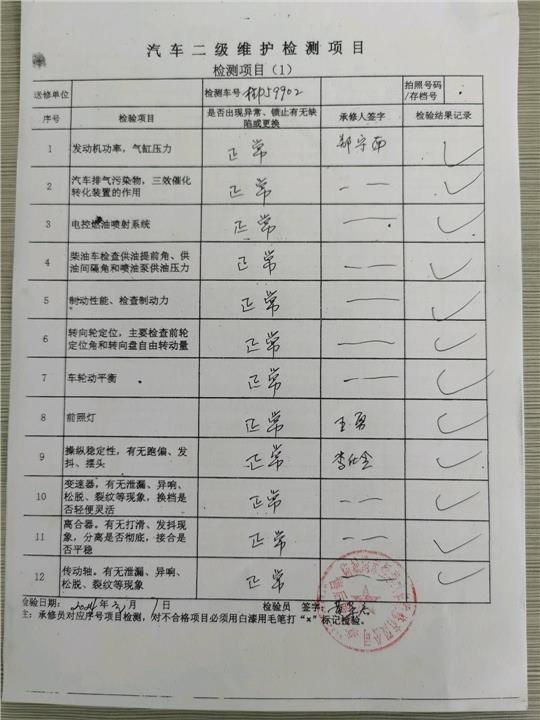 汽车二级维护检测项目
检测项目（1）
送修单位 检测车号 59902 拍照号码/存档号
序号 检验项目 是否出现异常、锁止有无缺陷或更换 承修人签字 检验结果记录
1 发动机功率，气缸压力 正常 郑守西 ✓
2 汽车排气污染物，三效催化转化装置的作用 正常 — — ✓
3 电控燃油喷射系统 正常 — ✓
4 柴油车检查供油提前角、供油间隔角和喷油泵供油压力 正常 — — ✓
5 制动性能、检查制动力 正常 — ✓
6 转向轮定位，主要检查前轮定位角和转向盘自由转动量 正常 — — ✓
7 车轮动平衡 正常 — — ✓
8 前照灯 正常 王勇 ✓
9 操纵稳定性，有无跑偏、发抖、摆头 正常 李 ✓
10 变速器，有无泄漏、异响、松脱、裂纹等现象，换档是否轻便灵活 正常 — — ✓
11 离合器。有无打滑、发抖现象，分离是否彻底，接合是否平稳 正常 — — ✓
12 传动轴。有无泄漏、异响、松脱、裂纹等现象 正常 ✓
检验日期： 年 月 7日 检验员 签字：
注：承修员对应序号项目检测，对不合格项目必须用白漆用毛笔打“×”标记检验。